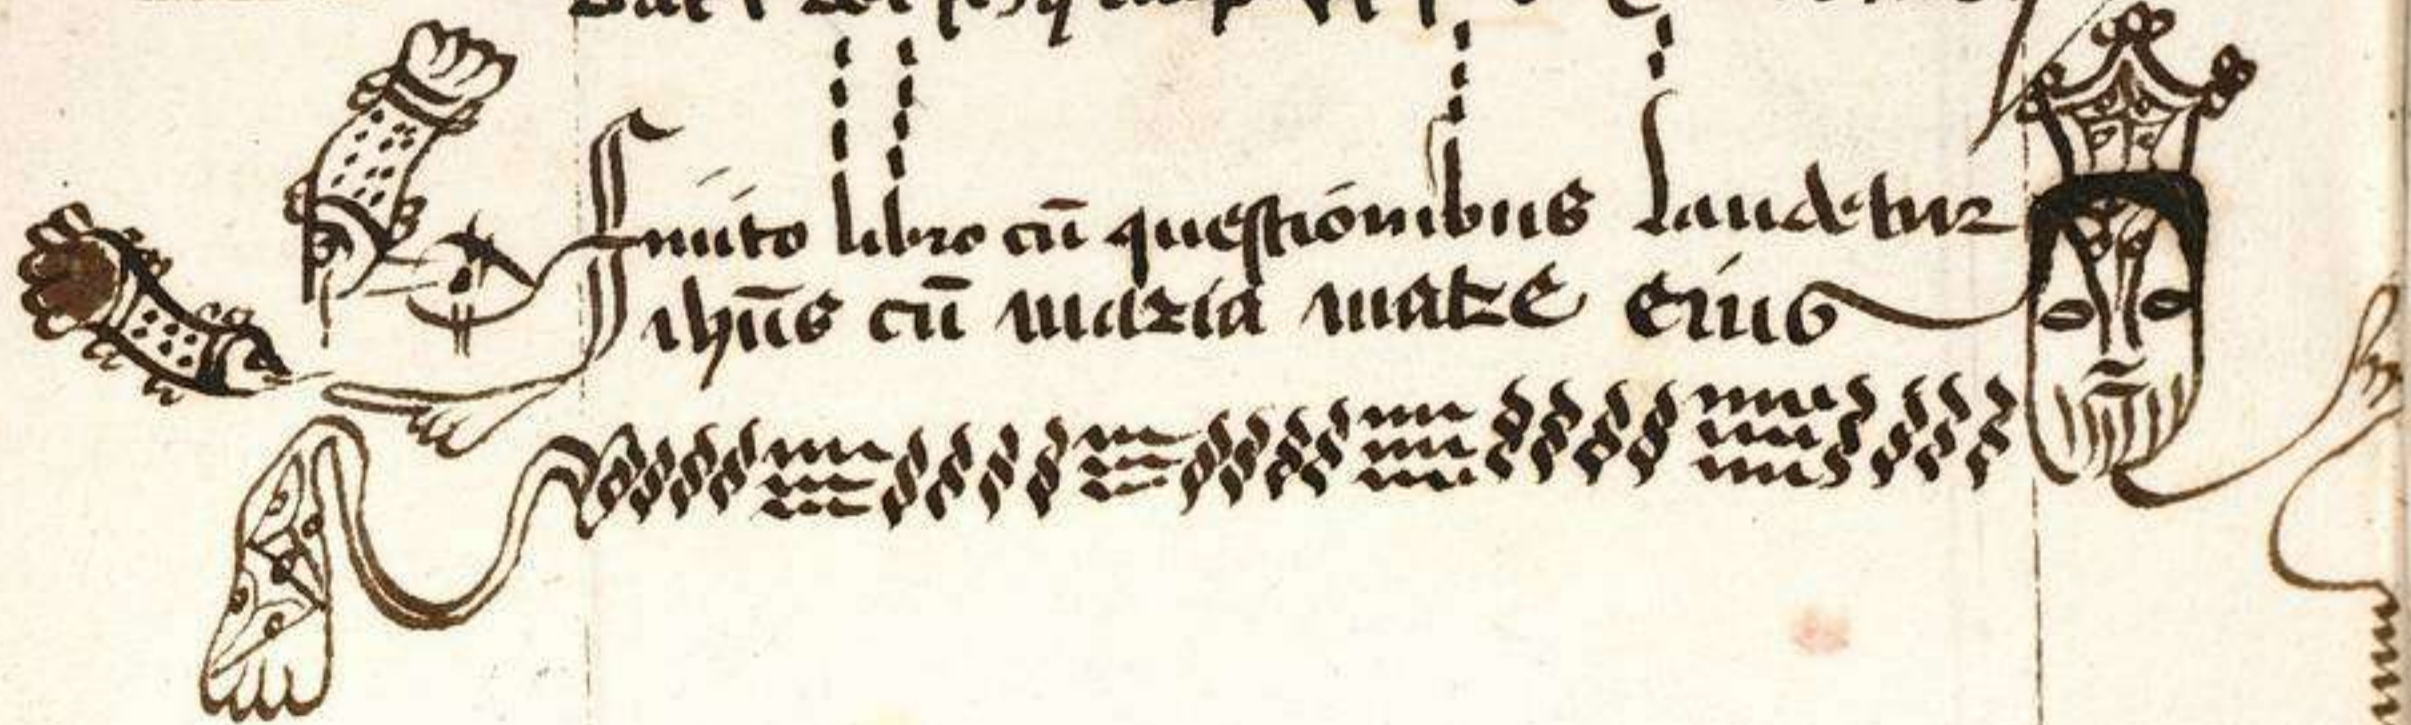 Finito libro cū questionibus laudetur
ihūs cū maria matre eius